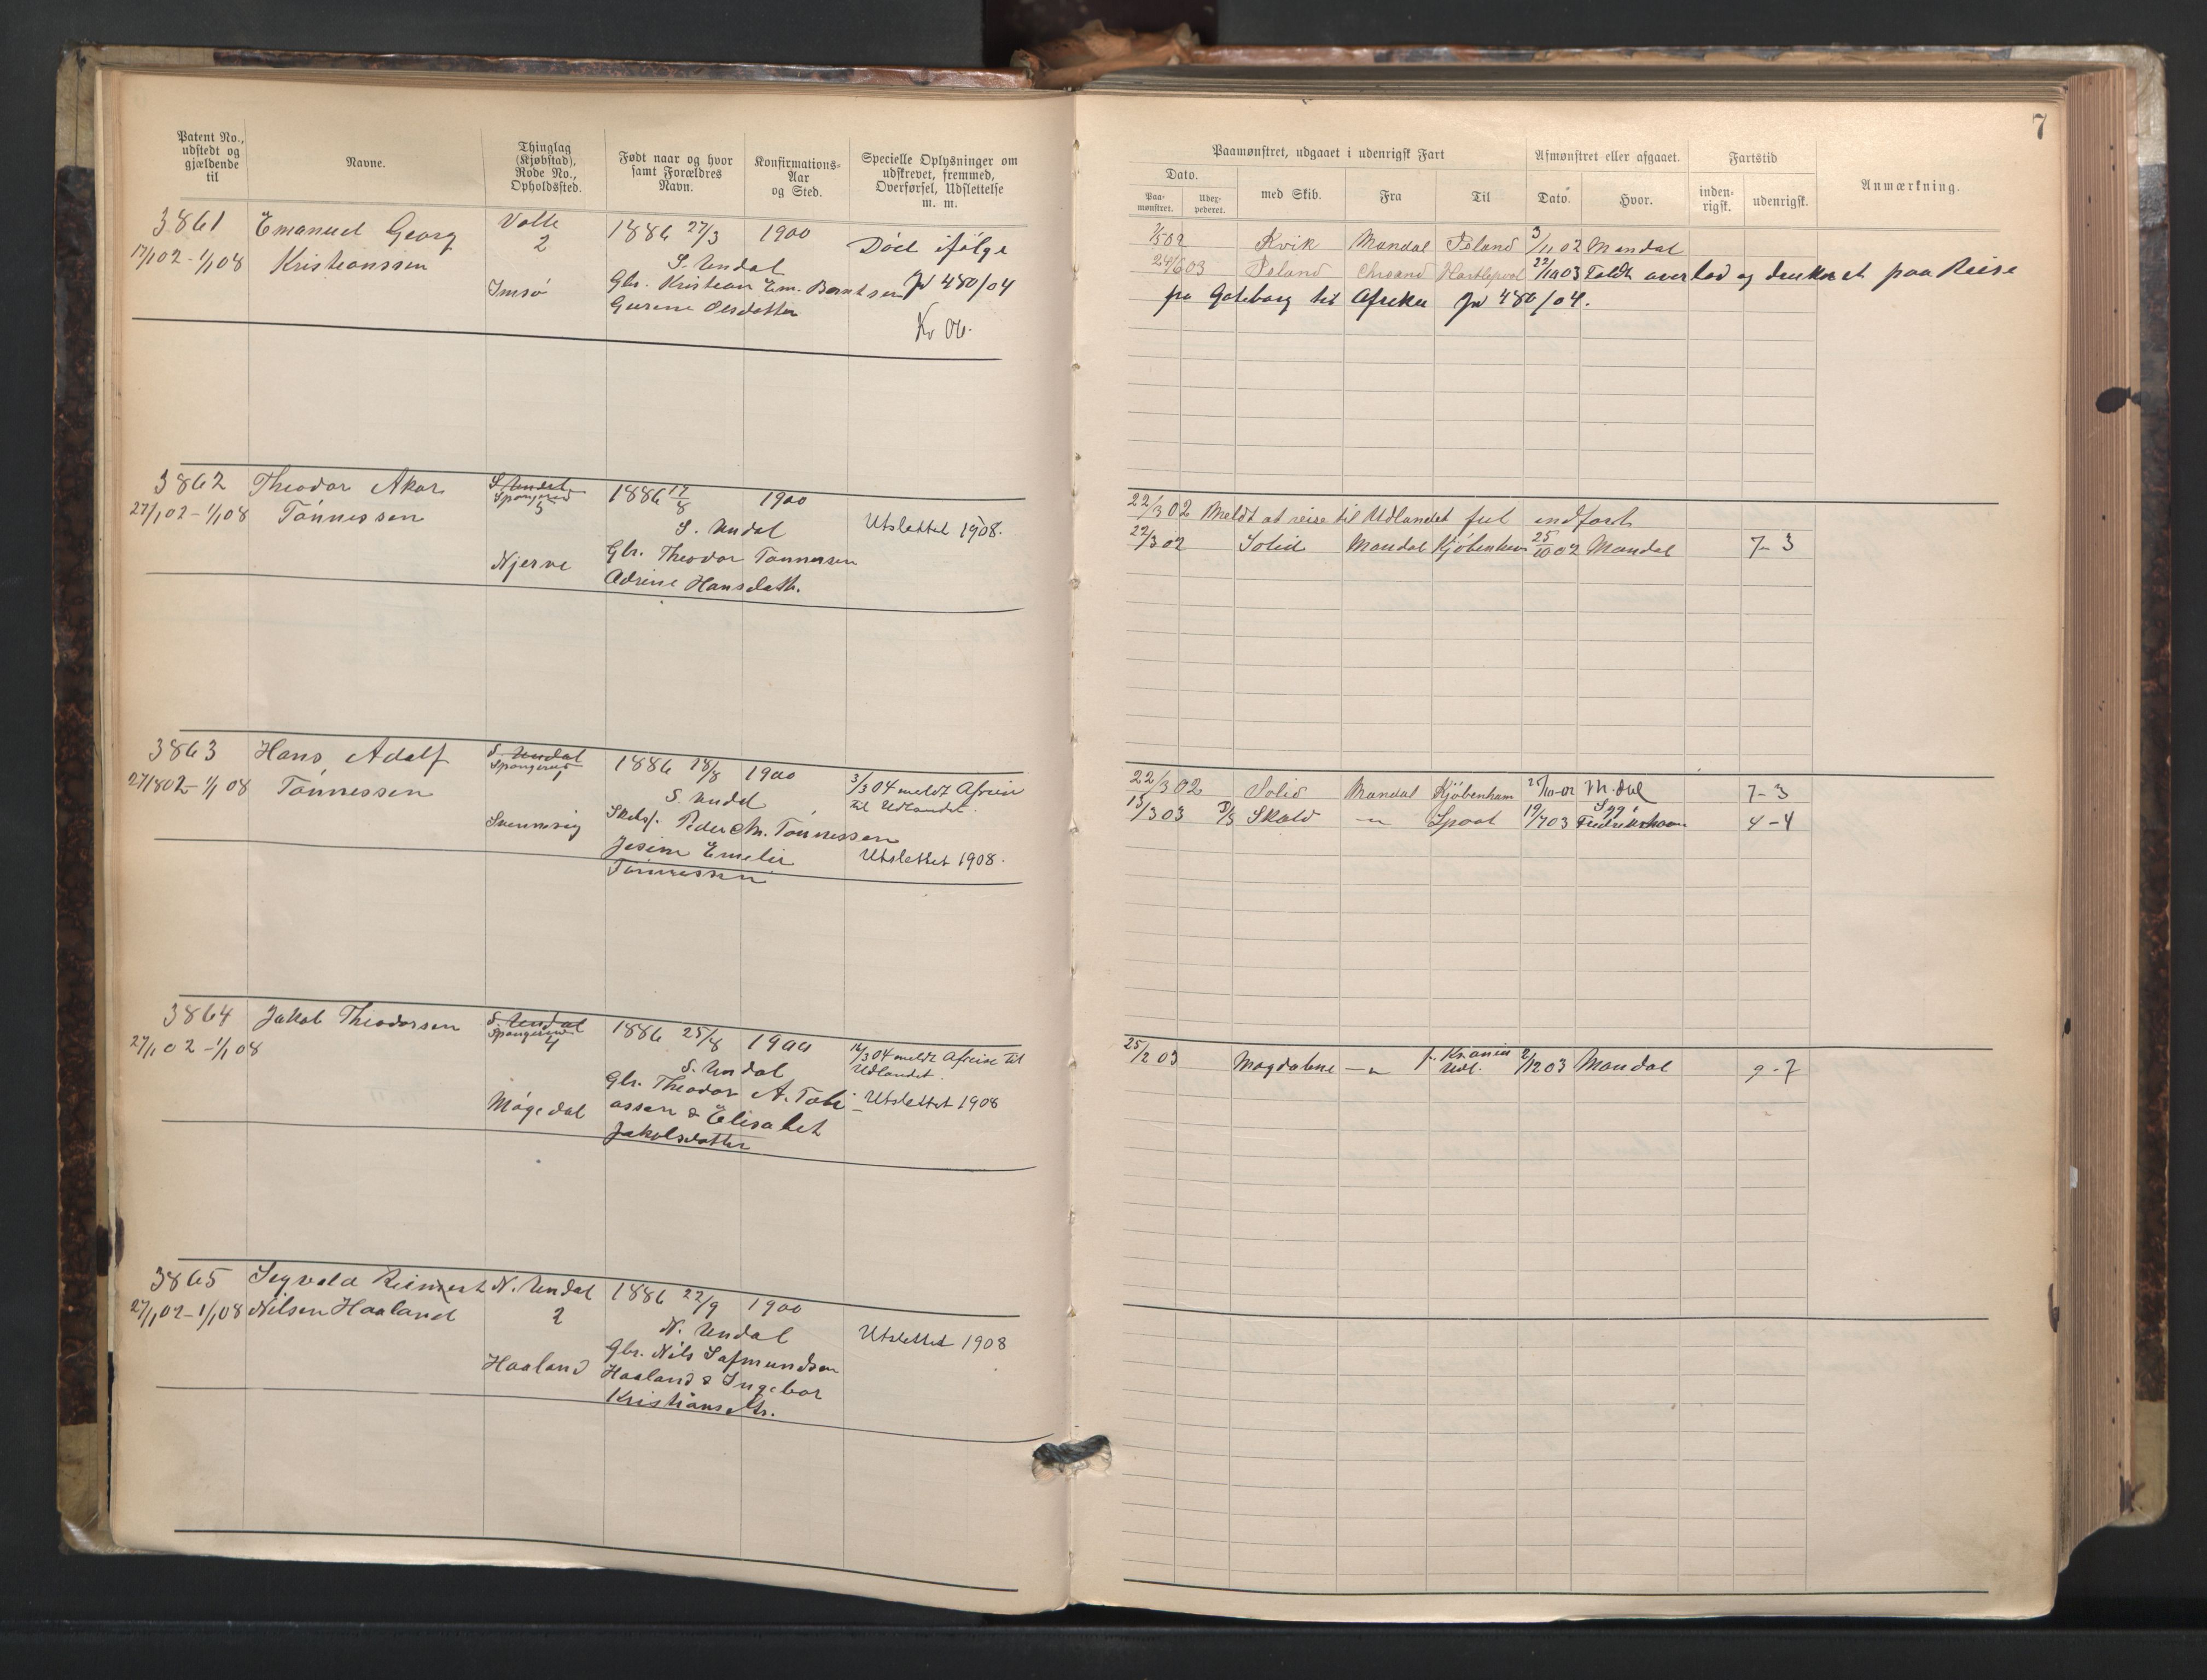 7
Patent No., udstedt og gjældende til
Navne.
Thinglag (Kjøbstad), Rode No., Opholdssted.
Født naar og hvor samt Forældres Navn.
Konfirmations-Aar og Sted.
Specielle Oplysninger om udskrevet, fremmed, Overførsel, Udslettelse m. m.
Paamønstret, udgaaet i udenrigsk Fart
Afmønstret eller afgaaet.
Fartstid
Anmærkning.
Dato.
Paa-mønstret.
Udex-pederet.
med Skib.
Fra
Til
Dato.
Hvor.
inden-rigsk.
udenrigsk.
3861 Emanuel Georg Valle 1886 27/3 1900 Død ifølge
17/1 02 - 1/1 08 Kristianssen 2 S. Undal
Imsø Gbr. Kristian Em. Berntsen Jr 480/04
Gurine Olsdatter
Kv 06.
Kvik Mandal Island 3/11 02 Mandal
24/6 03 Island Chrsand Hartlepool 22/10 03 Faldt overbod og druknet paa Reise
fra Gøteborg til Afrika Jr 480/04.
3862 Theodor Aker S. Undal 1886 17/8 1900
27/1 02 - 1/1 08 Tønnessen Spangereid 5 S. Undal Utslettet 1908.
Njerve Gbr. Theodor Tønnessen
Adrine Hansdatt.
22/3 02 Meldt at reise til Udlandet
22/3 02 Solid Mandal Kjøbenhavn 25/10 02 Mandal 7-3
3863 Hans Adolf S. Undal 1886 28/8 1900 3/3 04 meldt Afreise
27/1 02 - 1/1 08 Tønnessen Spangereid 1 S. Undal til Udlandet
Svennevig Peder M. Tønnessen
Jesine Emelie Utslettet 1908.
Tønnessen
22/3 02 Solid Mandal Kjøbenhavn 25/10-02 M.dal 7-3
15/3 03 Skald — " — 19/7 03 Fredrikshavn 4-4
3864 Jakob Theodorsen S. Undal 1886 25/8 1900 16/3 04 meldt Afreise til
27/1 02 - 1/1 08 Spangereid 4 S. Undal Udlandet.
Gbr. Theodor A. Tobi-
Møgedal assen & Elisabet Utslettet 1908
Jakobsdatter
25/2 03 Magdalene — " 2/12 03 Mandal 9-7
3865 Sigvald Reinert N. Undal 1886 22/9 1900
27/1 02 - 1/1 08 Nilsen Haaland 2 N. Undal Utslettet 1908
Gbr. Nils Salmundsen
Haaland Haaland & Ingebor
Kristiansdtr.